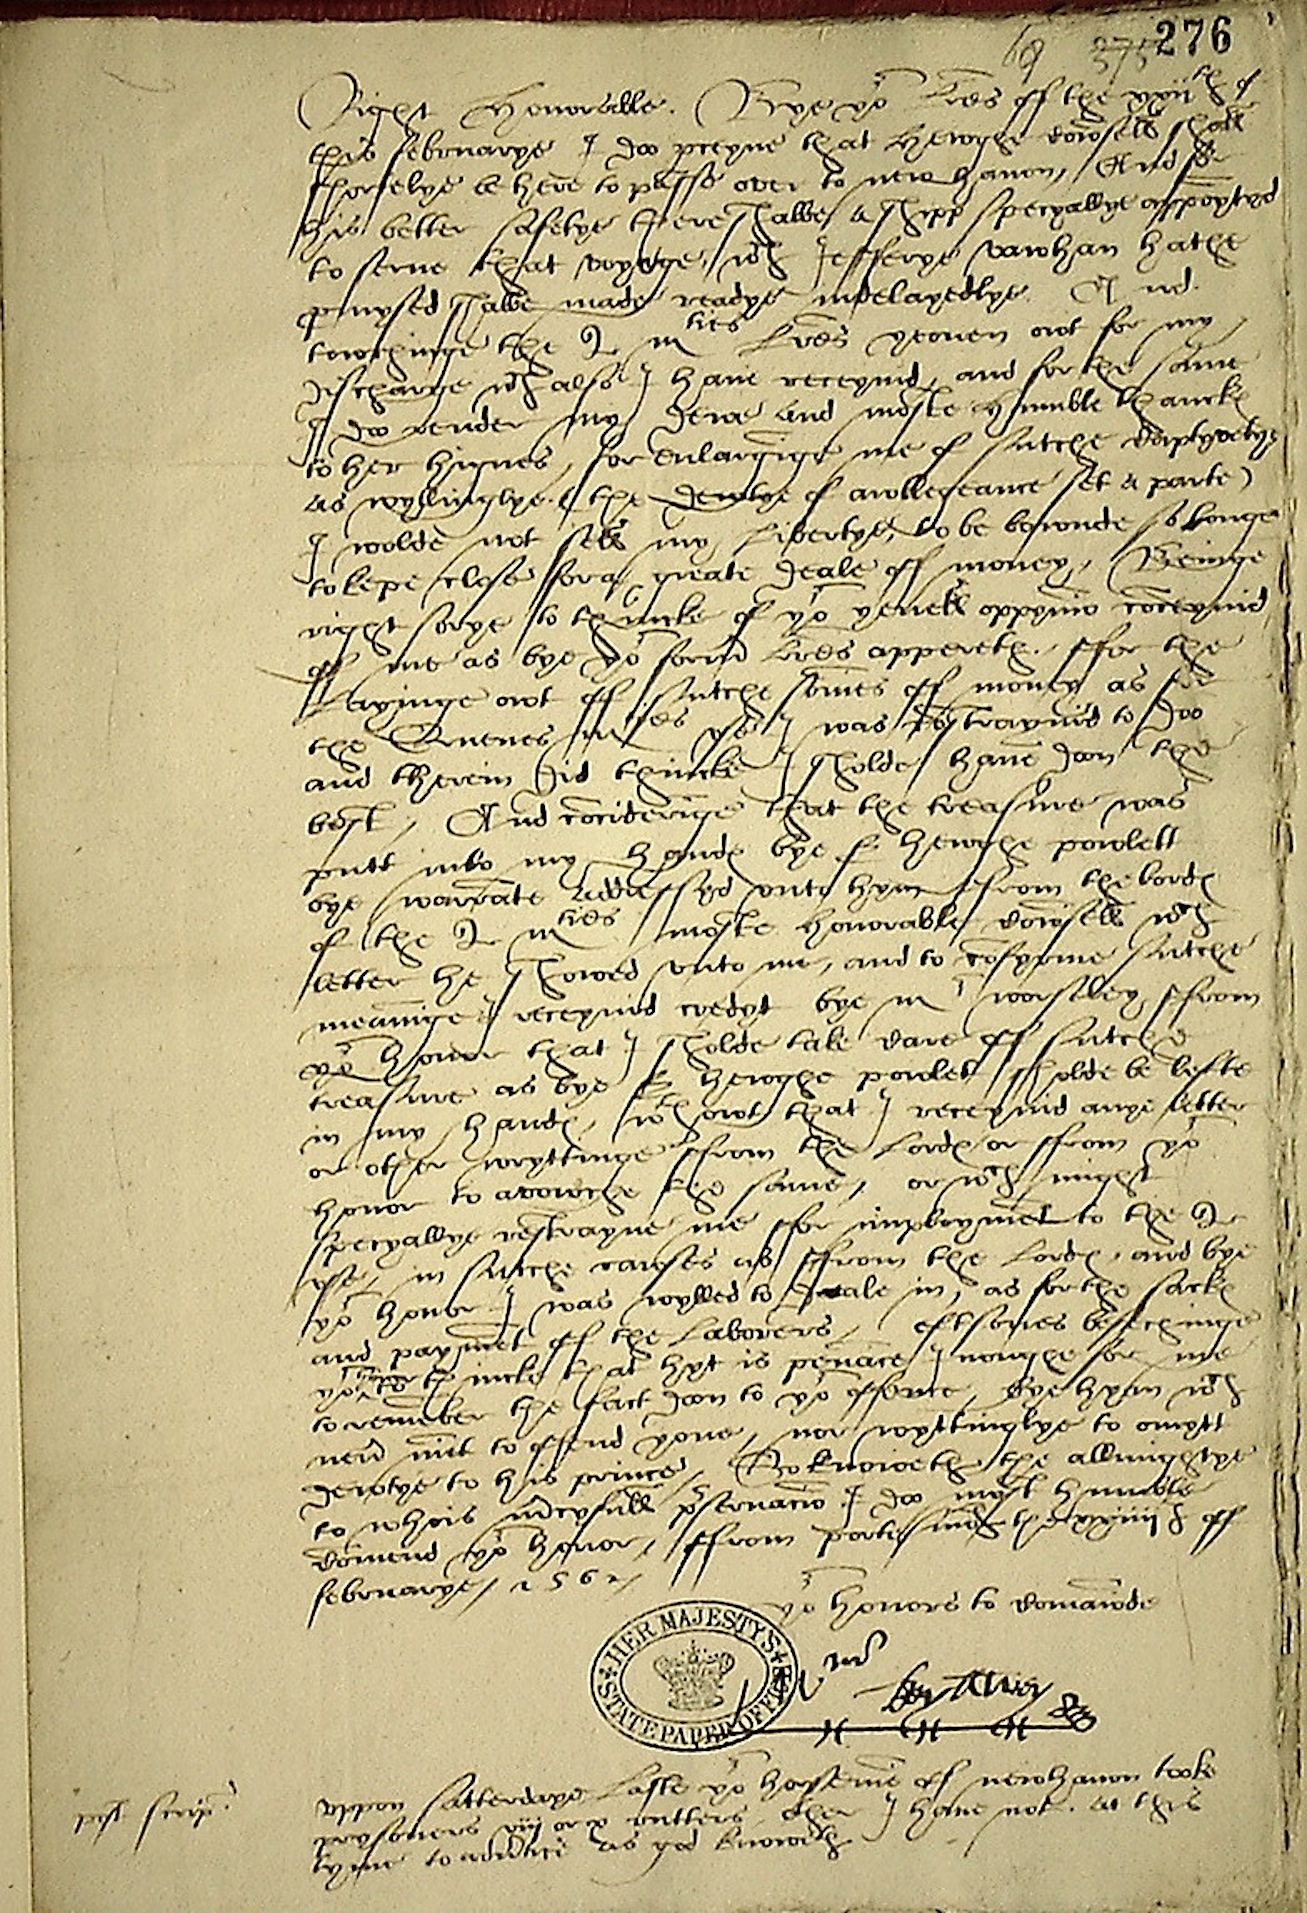 276
69 375
Right Honorable. Bye yor Lres off the xxiith of
this februarye I doo p̄ceyve that Hewghe Cownsell shall
shortelye be here to passe over to newhaven, And for
his better safetye there shalbe a shipp specyallye appoynted
to serve that voyage, wch Jefferye Vawhan hathe
promysed shalbe made readye indelayedlye. And
towchinge the Q maties Lres yeoven owt for my
discharge wch also I have receyvid, and for the same
I doo render my dewe and moste humble thanckes
to her highnes, for enlarginge me of sutche captyvetye
as wyllinglye (the dewtye of awllegeance set a parte)
I wolde not sell my libertye, to be bownde so longe
to kepe close for a greate deale off money, Beinge
right sorye to thincke of yor yevell oppynio conceyvid
off me as bye yor formr Lres appereth. ffor the
layinge owt off sutche somes off money as for
the Quenes maties use I was constraynid to doo
and therein did thincke I sholde have doon the
best, And considerige that the treasure was
putt into my handes bye sr Hewghe powlett
bye warrate addressyd unto hym from the lordes
of the Q maties moste honorable Cownsell wch
letter he showed unto me, and to confyrme sutche
meaninge I receyvid credyt bye mr worsley from
yor honor that I sholde take care off sutche
treasure as bye sr Hewghe powlet sholde be lefte
in my handes, wthowt that I receyvid anye letter
or other wryttinge ffrom the Lordes or ffrom yor
honor to avowche the same, or wch might
specyallye restrayne me ffor imploymet to the Q
use, in sutche causes as ffrom the lordes, and bye
yor honor I was wylled to deale in, as for the sackes
and paymet off the laborers, eftsones besechinge
yor honor to thincke that hyt is penance I noughe for me
to remember the fact doon to yor offence, bye hym wch
nevr mēt to offend youe, nor wyttinglye to omytt
dewtye to his prince, So knoweth the allmightye
to whois mercyfull pservacio I doo most humble
comend yor honor, ffrom portesmth the xxiiiith off
februarye, 1562,
yor honors to comawnde
HER MAJESTY'S STATE PAPER OFFICE
post scrip:
uppon Satterdaye laste yor horsemē off newhaven tooke
prysoners viij or x rutters, other I have not at this
tyme to advertice as god knoweth